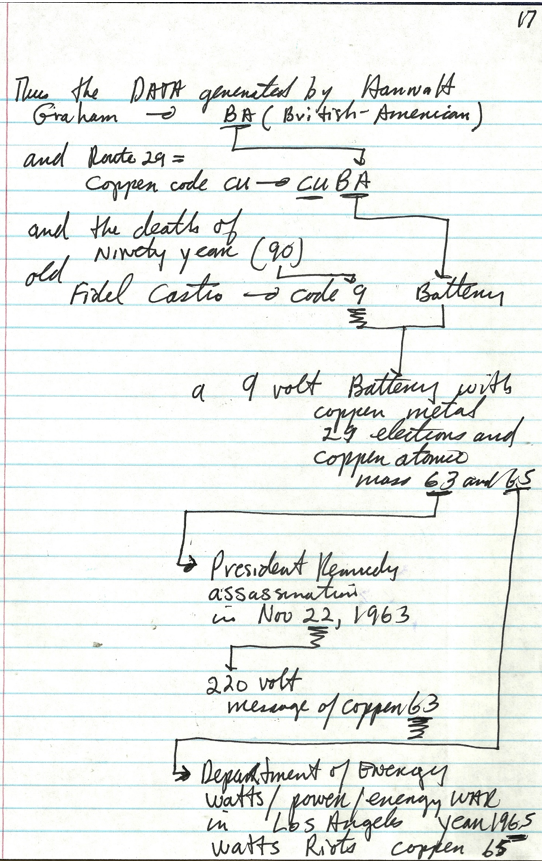 17
Thus the DATA generated by Hannah
Graham → BA (British-American)
and Route 29 =
Copper code cu → CUBA
and the death of
Ninety year (90)
old
Fidel Castro → code 9 Battery
a 9 volt Battery with
copper metal
29 electrons and
copper atomic
mass 63 and 65
President Kennedy
assassination
in Nov 22, 1963
220 volt
message of copper 63
Department of Energy
watts/power/energy WAR
in Los Angeles year 1965
Watts Riots copper 65